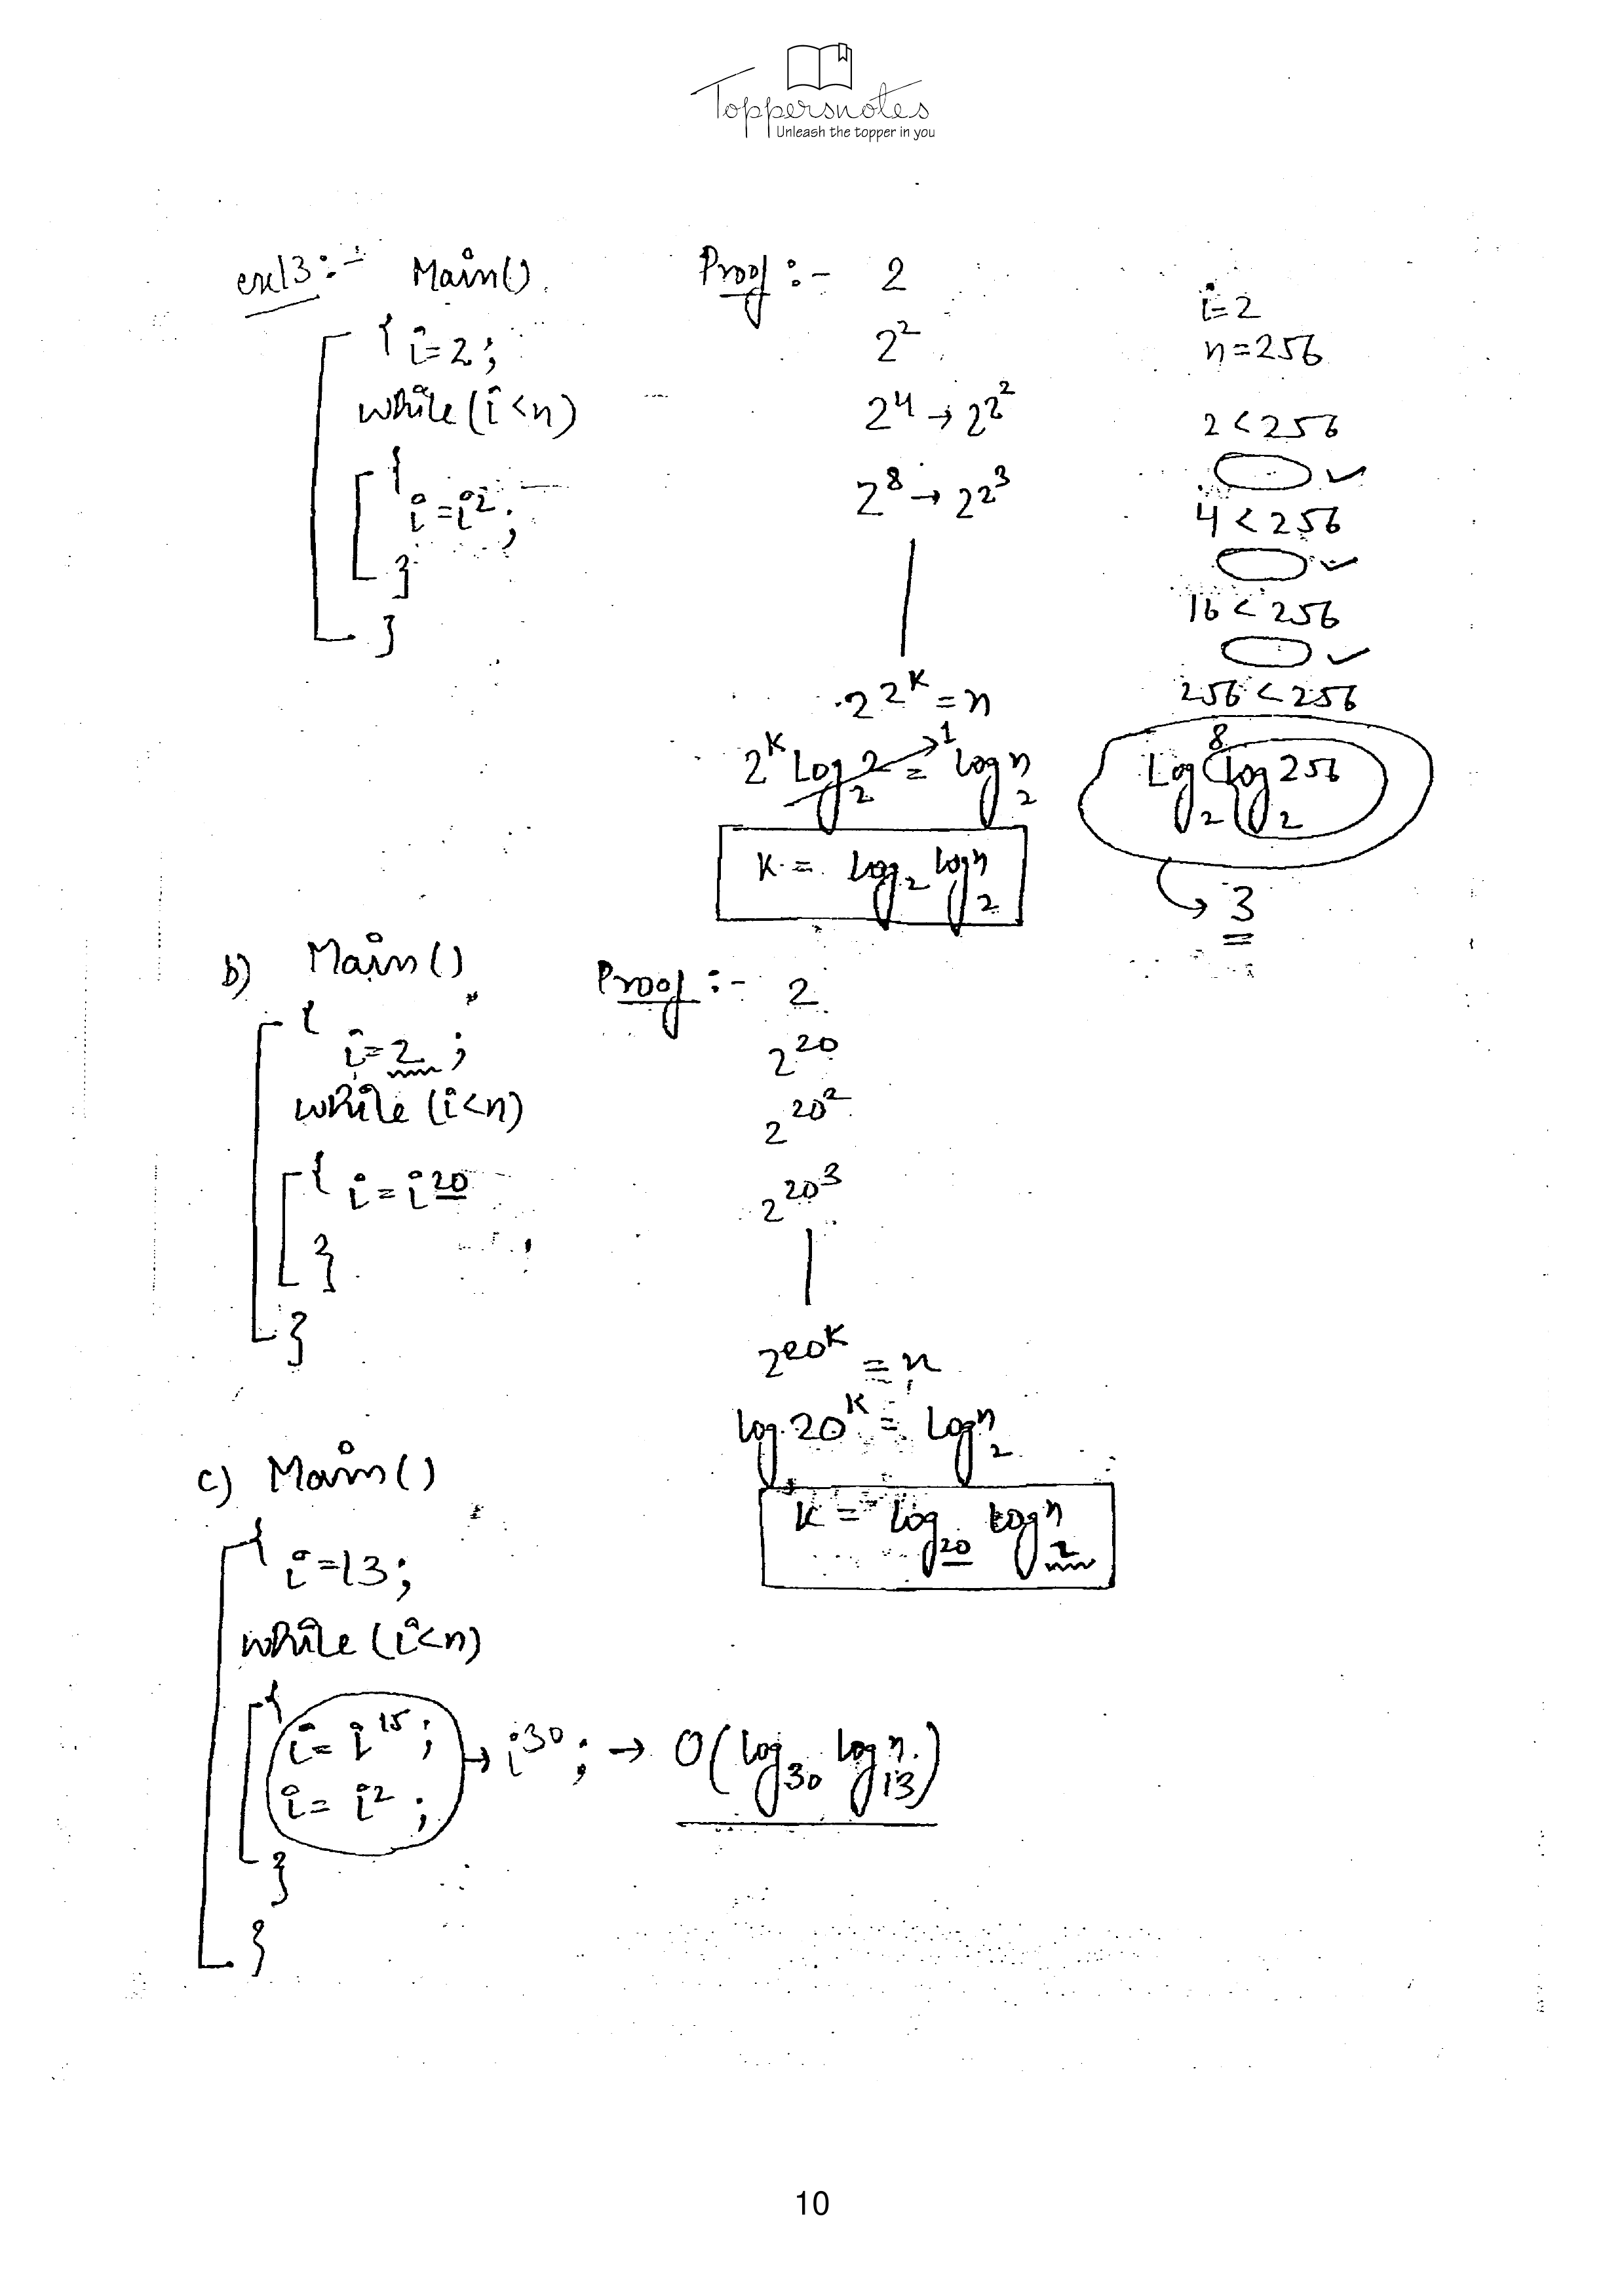 Toppersnotes
Unleash the topper in you
ex13:- Main()
{ i=2;
while(i<n)
{
i=i²;
}
}
Proof :- 2
2²
2⁴ → 2^2^2
2⁸ → 2^2^3
2^2^k = n
2^k log₂2 → 1 = log₂n
k = log₂ log₂n
i=2
n=256
2 < 256
✓
4 < 256
✓
16 < 256
✓
256 < 256
8
log₂ log₂256
→ 3
b) Main()
{
i=2;
while(i<n)
{ i=i^20
}
}
Proof :- 2
2^20
2^20^2
2^20^3
2^20^k = n
log 20^k = log₂n
k = log₂₀ log₂n
c) Main()
{
i=13;
while(i<n)
{
i=i^15; → i^30; → O(log₃₀ log₁₃n)
i=i²;
}
}
10